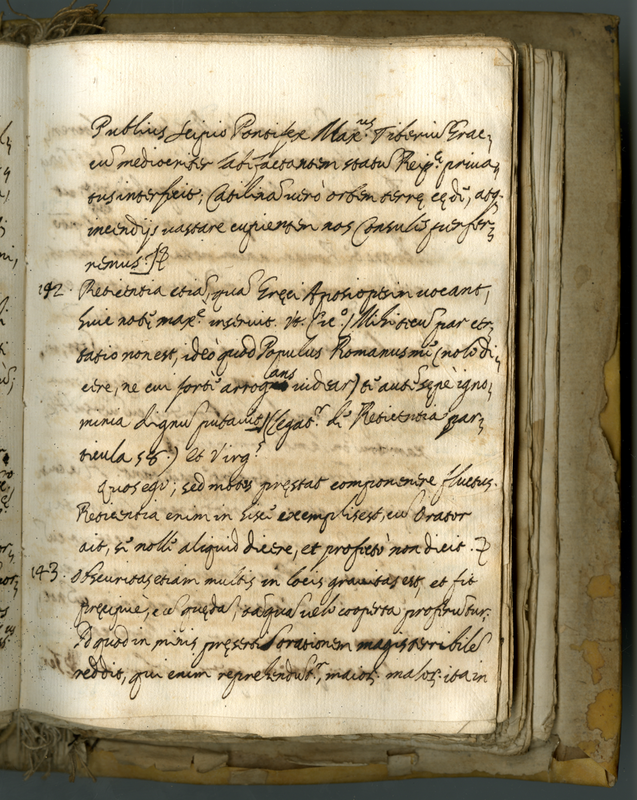 Publius Scipio Pontifex Max.us Tiberiū Grac,
cū mediocriter labefactantem statū Reip.e priua,
tus interfecit; Catilinā uerò orbem terrę cędē, atq.
incendijs uastare cupientem nos Consules perfer,
remus.
142. Reticentia etiā, quā Gręci Aposiopesin uocant,
huic notę max.e inseruit. Vt. (ic.o) Mihi tecū par cer,
tatio non est, ideò quod Populus Romanus mī (nolo di,
cere, ne cui fortè arrogans uidear) tē autē sępè igno,
minia dignū putauit) (legat.r dē Reticentia par,
ticula 58) et Virg.s
Quos ego; sed motos pręstat componere fluctus.
Reticentia enim in his exemplis est, cū Orator
ait, sē nolle aliquid dicere, et profectò non dicit.
143. Obscuritas etiam multis in locis grauitas est, et fit
pręcipuè, cū quędā, tāquā uelo cooperta proferūtur.
Id quod in minis pręsertī orationem magis terribilē
reddit, qui enim reprehendūt.r, maiores malos: ita in